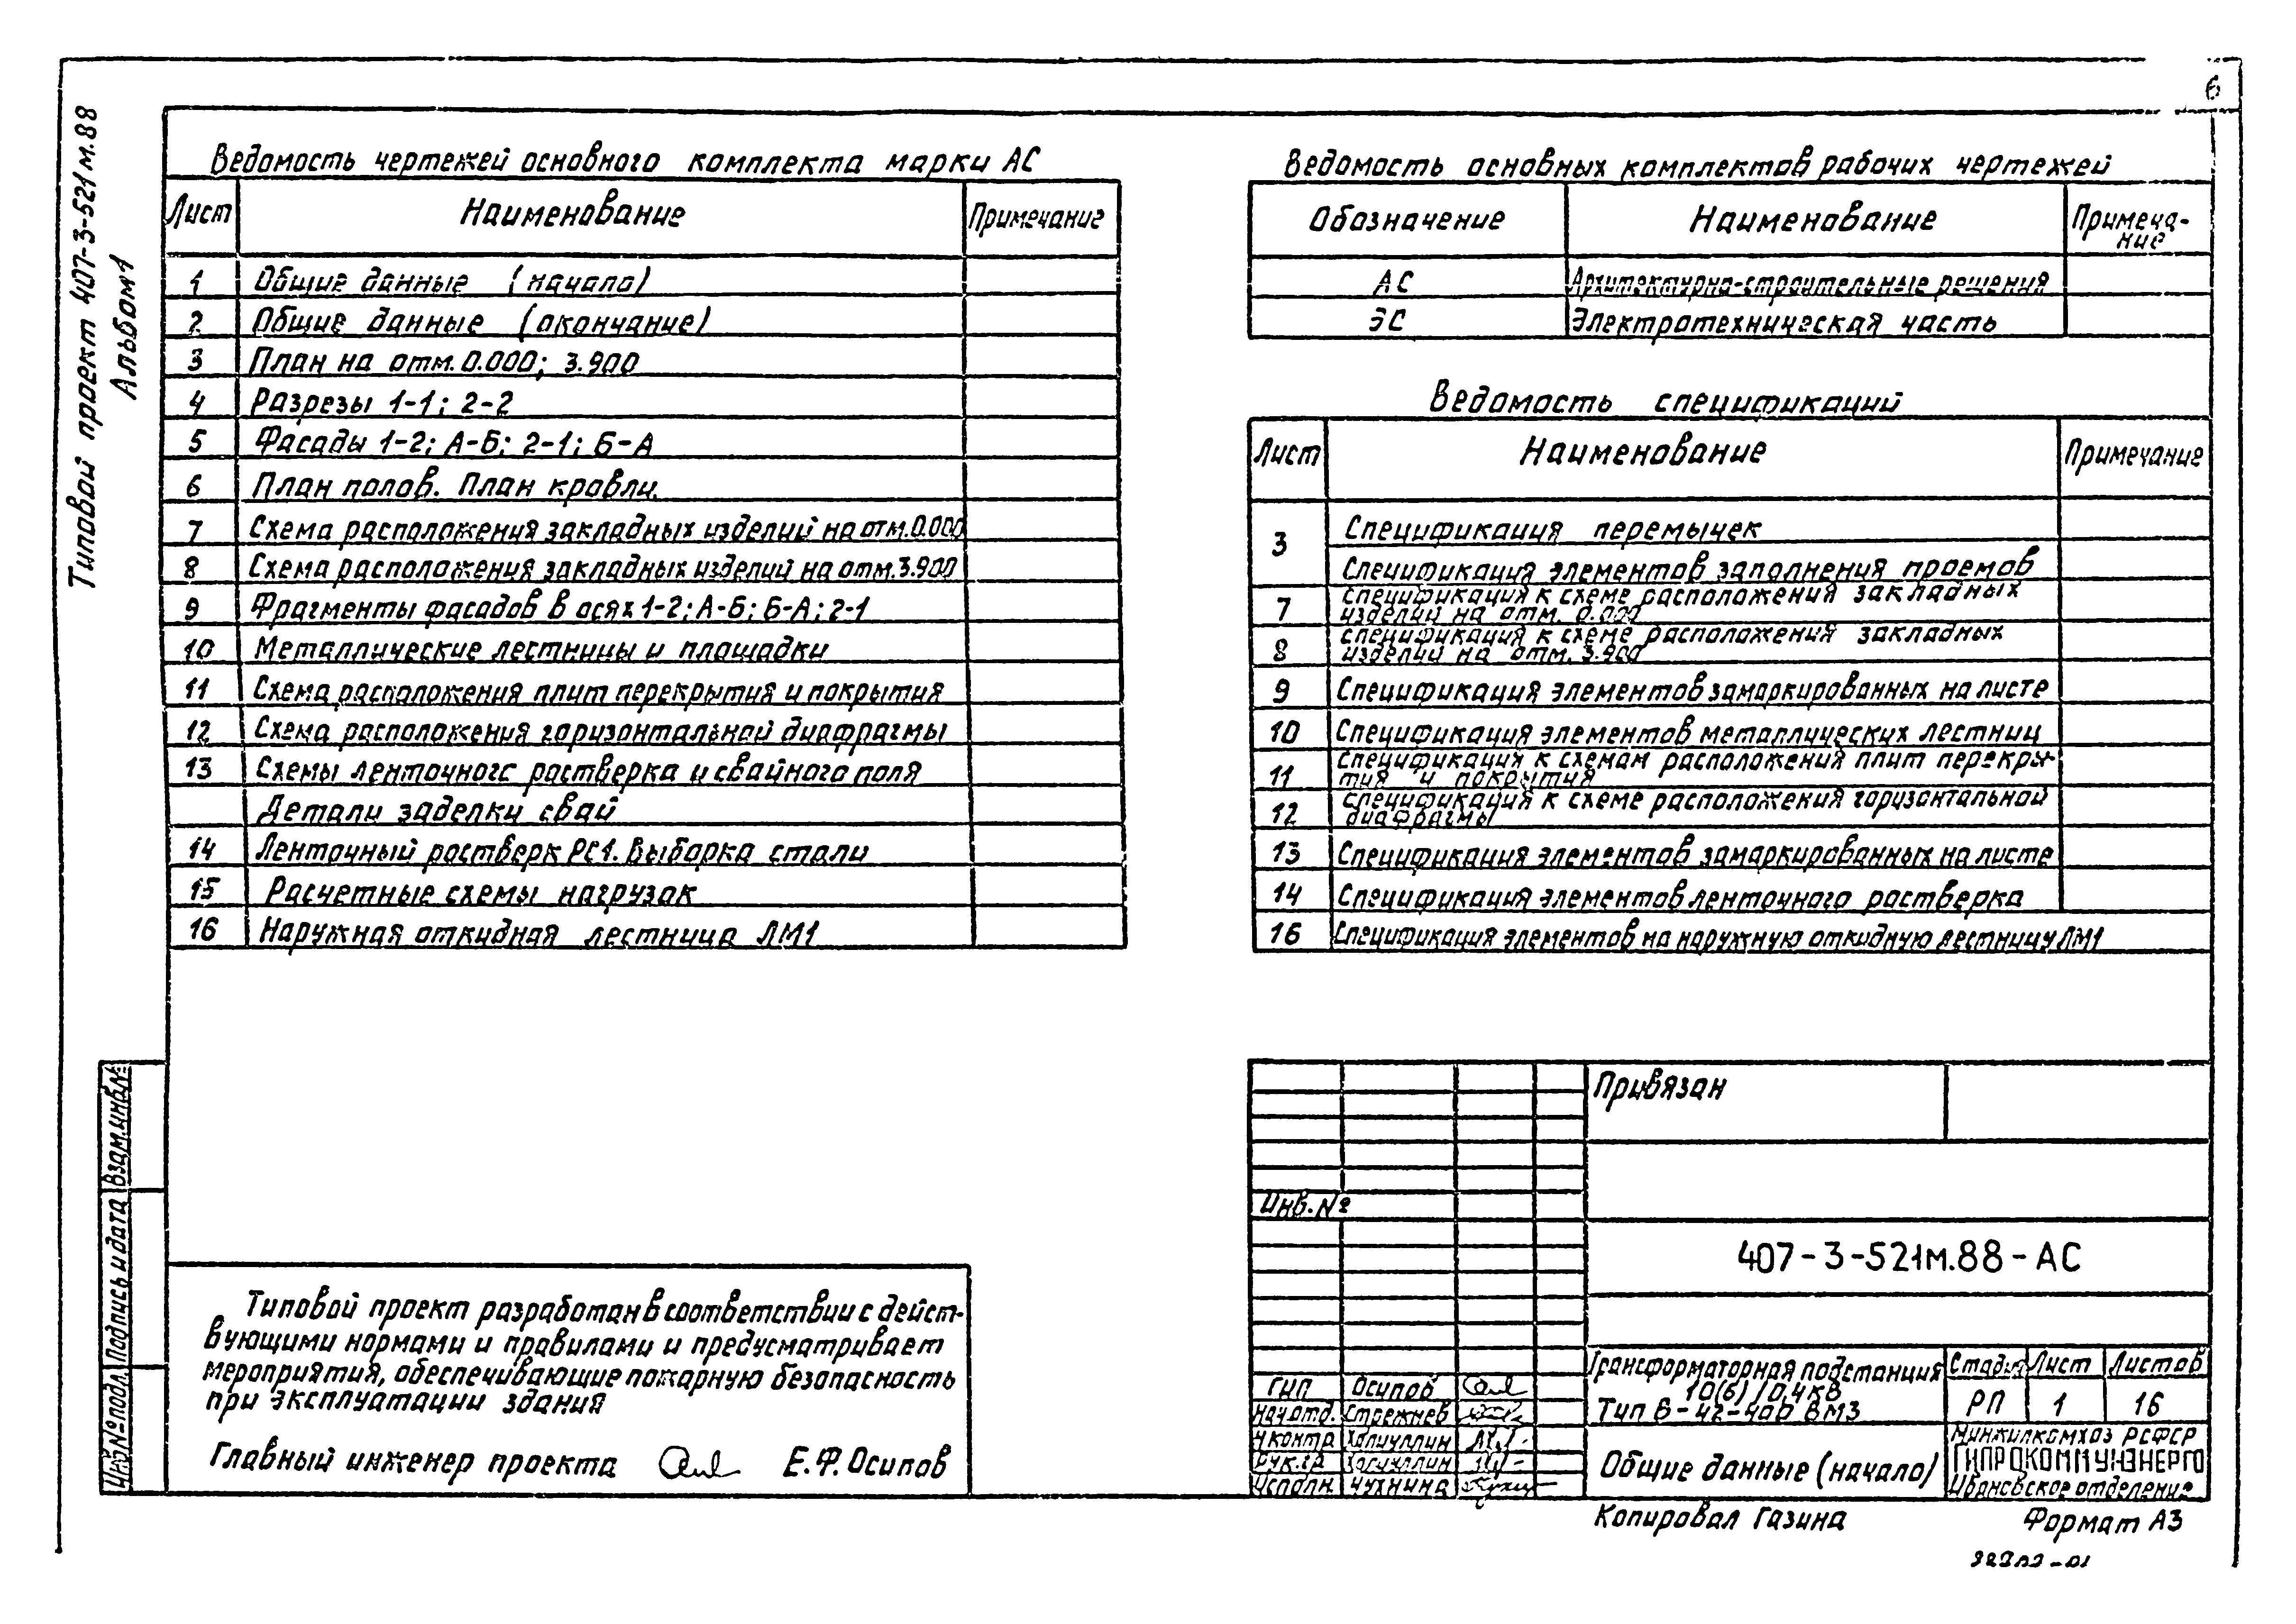 6
Типовой проект 407-3-521м.88
Альбом 1
Ведомость чертежей основного комплекта марки АС
Лист Наименование Примечание
1 Общие данные (начало)
2 Общие данные (окончание)
3 План на отм. 0.000; 3.900
4 Разрезы 1-1; 2-2
5 Фасады 1-2; А-Б; 2-1; Б-А
6 План полов. План кровли.
7 Схема расположения закладных изделий на отм. 0.000
8 Схема расположения закладных изделий на отм. 3.900
9 Фрагменты фасадов в осях 1-2; А-Б; Б-А; 2-1
10 Металлические лестницы и площадки
11 Схема расположения плит перекрытия и покрытия
12 Схема расположения горизонтальной диафрагмы
13 Схемы ленточного ростверка и свайного поля
Детали заделки свай
14 Ленточный ростверк РС1. Выборка стали
15 Расчетные схемы нагрузок
16 Наружная откидная лестница ЛМ1
Ведомость основных комплектов рабочих чертежей
Обозначение Наименование Примеча-
ние
АС Архитектурно-строительные решения
ЭС Электротехническая часть
Ведомость спецификаций
Лист Наименование Примечание
3 Спецификация перемычек
Спецификация элементов заполнения проемов
7 Спецификация к схеме расположения закладных
изделий на отм. 0.000
8 Спецификация к схеме расположения закладных
изделий на отм. 3.900
9 Спецификация элементов замаркированных на листе
10 Спецификация элементов металлических лестниц
11 Спецификация к схемам расположения плит перекры-
тия и покрытия
12 Спецификация к схеме расположения горизонтальной
диафрагмы
13 Спецификация элементов замаркированных на листе
14 Спецификация элементов ленточного ростверка
16 Спецификация элементов на наружную откидную лестницу ЛМ1
Взам.инв.№
Подпись и дата
Инв.№ подл.
Типовой проект разработан в соответствии с дейст-
вующими нормами и правилами и предусматривает
мероприятия, обеспечивающие пожарную безопасность
при эксплуатации здания
Главный инженер проекта Е.Ф. Осипов
Привязан
Инв.№
407-3-521м.88-АС
ГИП Осипов
Нач.отд. Стрежнев
Н.контр Халиуллин
Рук.гр Халиуллин
Исполн. Чухнина
Трансформаторная подстанция
10(6)/0,4кВ
Тип В-42-400 ВМ3
Стадия Лист Листов
РП 1 16
Общие данные (начало)
Минжилкомхоз РСФСР
ГИПРОКОММУНЭНЕРГО
Ивановское отделение
Копировал Газина
Формат А3